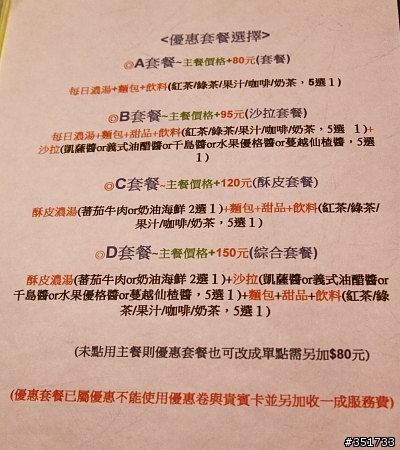 <優惠套餐選擇>
◎A套餐~主餐價格+80元(套餐)
每日濃湯+麵包+飲料(紅茶/綠茶/果汁/咖啡/奶茶，5選1)
◎B套餐~主餐價格+95元(沙拉套餐)
每日濃湯+麵包+甜品+飲料(紅茶/綠茶/果汁/咖啡/奶茶，5選 1)+
沙拉(凱薩醬or義式油醋醬or千島醬or水果優格醬or蔓越仙楂醬，5選
1)
◎C套餐~主餐價格+120元(酥皮套餐)
酥皮濃湯(蕃茄牛肉or奶油海鮮 2選1)+麵包+甜品+飲料(紅茶/綠茶/
果汁/咖啡/奶茶，5選1)
◎D套餐~主餐價格+150元(綜合套餐)
酥皮濃湯(蕃茄牛肉or奶油海鮮 2選1)+沙拉(凱薩醬or義式油醋醬or
千島醬or水果優格醬or蔓越仙楂醬，5選1)+麵包+甜品+飲料(紅茶/綠
茶/果汁/咖啡/奶茶，5選1)
(未點用主餐則優惠套餐也可改成單點需另加$80元)
(優惠套餐已屬優惠不能使用優惠卷與貴賓卡並另加收一成服務費)
#351733